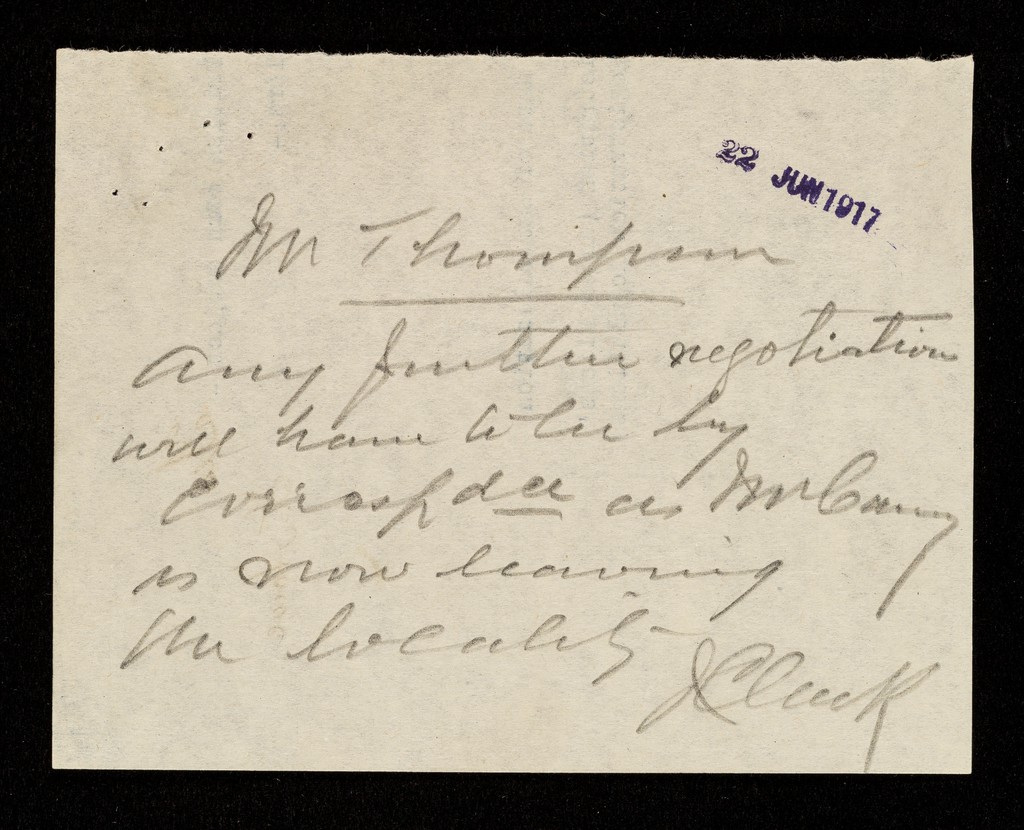 22 JUN 1917
Mr Thompson
any further negotiation
will have to be by
correspdce as Mr
is now leaving
the locality
J Clark